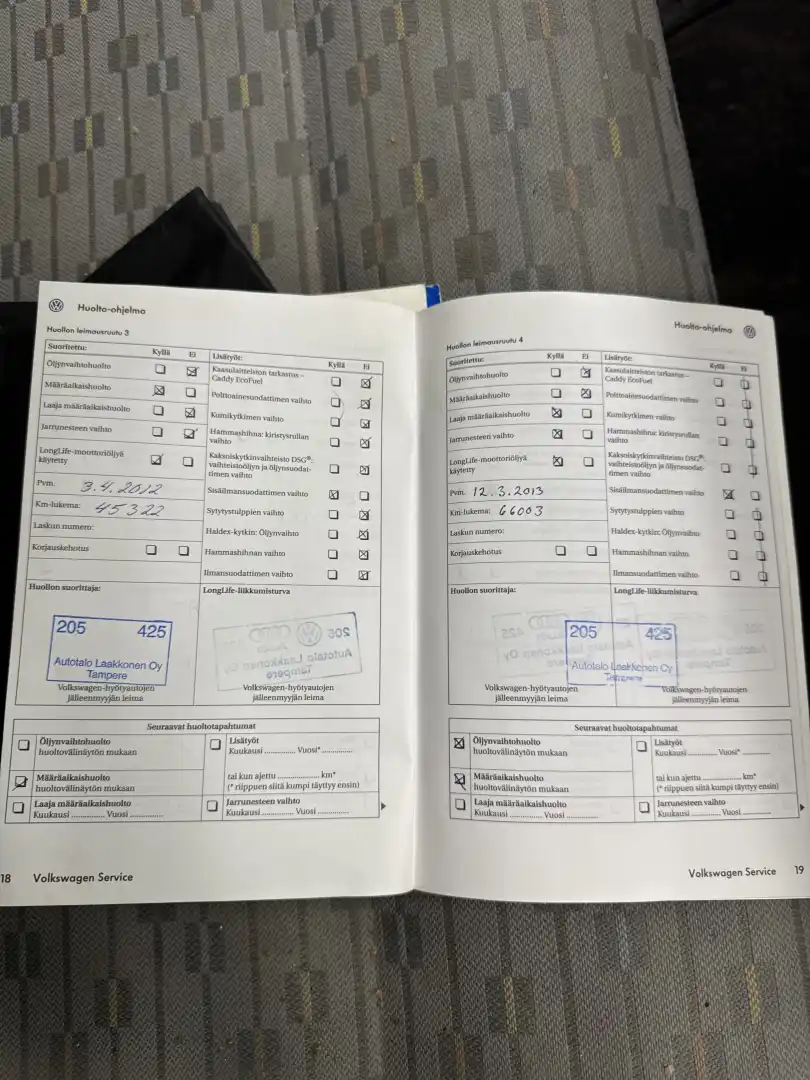 Huolto-ohjelma
Huollon leimausruutu 3
Suoritettu: Kyllä Ei
Öljynvaihtohuolto
Määräaikaishuolto
Laaja määräaikaishuolto
Jarrunesteen vaihto
LongLife-moottoriöljyä
käytetty
Pvm. 3.4.2012
Km-lukema: 45322
Laskun numero:
Korjauskehotus
Lisätyöt: Kyllä Ei
Kaasulaitteiston tarkastus –
Caddy EcoFuel
Polttoainesuodattimen vaihto
Kumikytkimen vaihto
Hammashihna: kiristysrullan
vaihto
Kaksoiskytkinvaihteisto DSG®:
vaihteistoöljyn ja öljynsuodat-
timen vaihto
Sisäilmansuodattimen vaihto
Sytytystulppien vaihto
Haldex-kytkin: Öljynvaihto
Hammashihnan vaihto
Ilmansuodattimen vaihto
Huollon suorittaja:
LongLife-liikkumisturva
205 425
Autotalo Laakkonen Oy
Tampere
Volkswagen-hyötyautojen
jälleenmyyjän leima
205
Autotalo Laakkonen Oy
Tampere
Volkswagen-hyötyautojen
jälleenmyyjän leima
Seuraavat huoltotapahtumat
Öljynvaihtohuolto
huoltovälinäytön mukaan
Määräaikaishuolto
huoltovälinäytön mukaan
Laaja määräaikaishuolto
Kuukausi .............. Vuosi ..............
Lisätyöt
Kuukausi .............. Vuosi* ..............
tai kun ajettu .................. km*
(* riippuen siitä kumpi täyttyy ensin)
Jarrunesteen vaihto
Kuukausi .............. Vuosi ..............
18 Volkswagen Service
Huolto-ohjelma
Huollon leimausruutu 4
Suoritettu: Kyllä Ei
Öljynvaihtohuolto
Määräaikaishuolto
Laaja määräaikaishuolto
Jarrunesteen vaihto
LongLife-moottoriöljyä
käytetty
Pvm. 12.3.2013
Km-lukema: 66003
Laskun numero:
Korjauskehotus
Lisätyöt: Kyllä Ei
Kaasulaitteiston tarkastus –
Caddy EcoFuel
Polttoainesuodattimen vaihto
Kumikytkimen vaihto
Hammashihna: kiristysrullan
vaihto
Kaksoiskytkinvaihteisto DSG®:
vaihteistoöljyn ja öljynsuodat-
timen vaihto
Sisäilmansuodattimen vaihto
Sytytystulppien vaihto
Haldex-kytkin: Öljynvaihto
Hammashihnan vaihto
Ilmansuodattimen vaihto
Huollon suorittaja:
LongLife-liikkumisturva
205 425
Autotalo Laakkonen Oy
Tampere
Volkswagen-hyötyautojen
jälleenmyyjän leima
Volkswagen-hyötyautojen
jälleenmyyjän leima
Seuraavat huoltotapahtumat
Öljynvaihtohuolto
huoltovälinäytön mukaan
Määräaikaishuolto
huoltovälinäytön mukaan
Laaja määräaikaishuolto
Kuukausi .............. Vuosi ..............
Lisätyöt
Kuukausi .............. Vuosi* ..............
tai kun ajettu .................. km*
(* riippuen siitä kumpi täyttyy ensin)
Jarrunesteen vaihto
Kuukausi .............. Vuosi ..............
Volkswagen Service 19